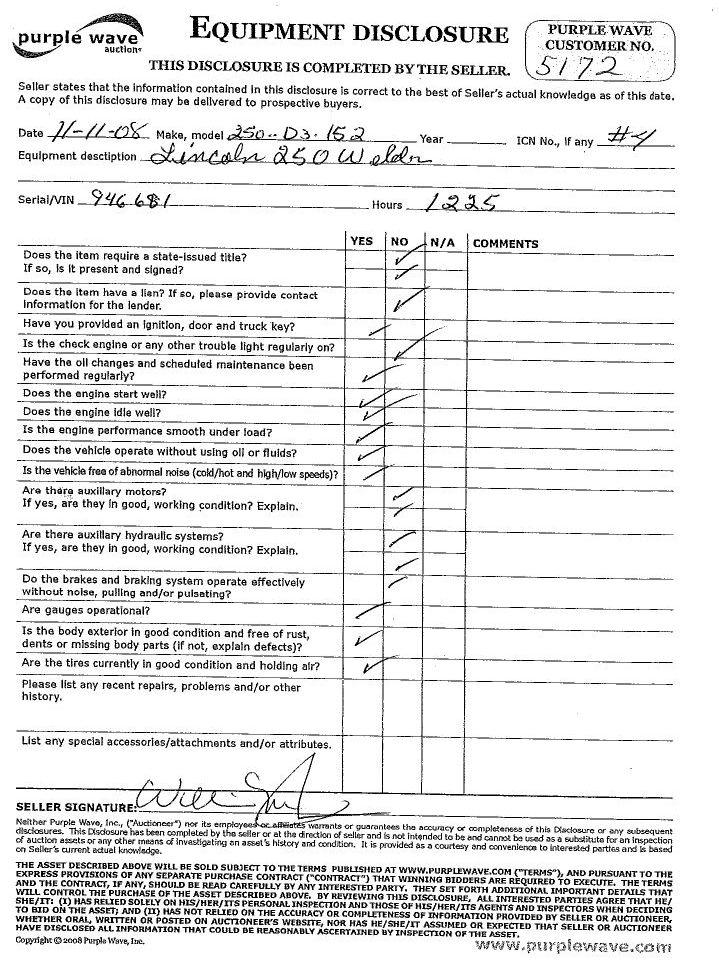 purple wave
auction®
EQUIPMENT DISCLOSURE
PURPLE WAVE
CUSTOMER NO.
5172
THIS DISCLOSURE IS COMPLETED BY THE SELLER.
Seller states that the information contained in this disclosure is correct to the best of Seller's actual knowledge as of this date.
A copy of this disclosure may be delivered to prospective buyers.
Date 11-11-08 Make, model 250-D3-152 Year ICN No., if any #4
Equipment desctiption Lincoln 250 Welder
Serial/VIN 946681 Hours 1225
YES NO N/A COMMENTS
Does the item require a state-issued title? ✓
If so, is it present and signed? ✓
Does the item have a lien? If so, please provide contact
information for the lender. ✓
Have you provided an ignition, door and truck key? ✓
Is the check engine or any other trouble light regularly on? ✓
Have the oil changes and scheduled maintenance been
performed regularly? ✓
Does the engine start well? ✓
Does the engine idle well? ✓
Is the engine performance smooth under load? ✓
Does the vehicle operate without using oil or fluids? ✓
Is the vehicle free of abnormal noise (cold/hot and high/low speeds)? ✓
Are there auxiliary motors? ✓
If yes, are they in good, working condition? Explain. ✓
Are there auxiliary hydraulic systems? ✓
If yes, are they in good, working condition? Explain. ✓
Do the brakes and braking system operate effectively
without noise, pulling and/or pulsating? ✓
Are gauges operational? ✓
Is the body exterior in good condition and free of rust,
dents or missing body parts (if not, explain defects)? ✓
Are the tires currently in good condition and holding air? ✓
Please list any recent repairs, problems and/or other
history.
List any special accessories/attachments and/or attributes.
SELLER SIGNATURE:
Neither Purple Wave, Inc., ("Auctioneer") nor its employees or affiliates warrants or guarantees the accuracy or completeness of this Disclosure or any subsequent
disclosures. This Disclosure has been completed by the seller or at the direction of seller and is not intended to be and cannot be used as a substitute for an inspection
of auction assets or any other means of investigating an asset's history and condition. It is provided as a courtesy and convenience to interested parties and is based
on Seller's current actual knowledge.
THE ASSET DESCRIBED ABOVE WILL BE SOLD SUBJECT TO THE TERMS PUBLISHED AT WWW.PURPLEWAVE.COM ("TERMS"), AND PURSUANT TO THE
EXPRESS PROVISIONS OF ANY SEPARATE PURCHASE CONTRACT ("CONTRACT") THAT WINNING BIDDERS ARE REQUIRED TO EXECUTE. THE TERMS
AND THE CONTRACT, IF ANY, SHOULD BE READ CAREFULLY BY ANY INTERESTED PARTY. THEY SET FORTH ADDITIONAL IMPORTANT DETAILS THAT
WILL CONTROL THE PURCHASE OF THE ASSET DESCRIBED ABOVE. BY REVIEWING THIS DISCLOSURE, ALL INTERESTED PARTIES AGREE THAT HE/
SHE/IT: (I) HAS RELIED SOLELY ON HIS/HER/ITS PERSONAL INSPECTION AND THOSE OF HIS/HER/ITS AGENTS AND INSPECTORS WHEN DECIDING
TO BID ON THE ASSET; AND (II) HAS NOT RELIED ON THE ACCURACY OR COMPLETENESS OF INFORMATION PROVIDED BY SELLER OR AUCTIONEER,
WHETHER ORAL, WRITTEN OR POSTED ON AUCTIONEER'S WEBSITE, NOR HAS HE/SHE/IT ASSUMED OR EXPECTED THAT SELLER OR AUCTIONEER
HAVE DISCLOSED ALL INFORMATION THAT COULD BE REASONABLY ASCERTAINED BY INSPECTION OF THE ASSET.
Copyright © 2008 Purple Wave, Inc.
www.purplewave.com